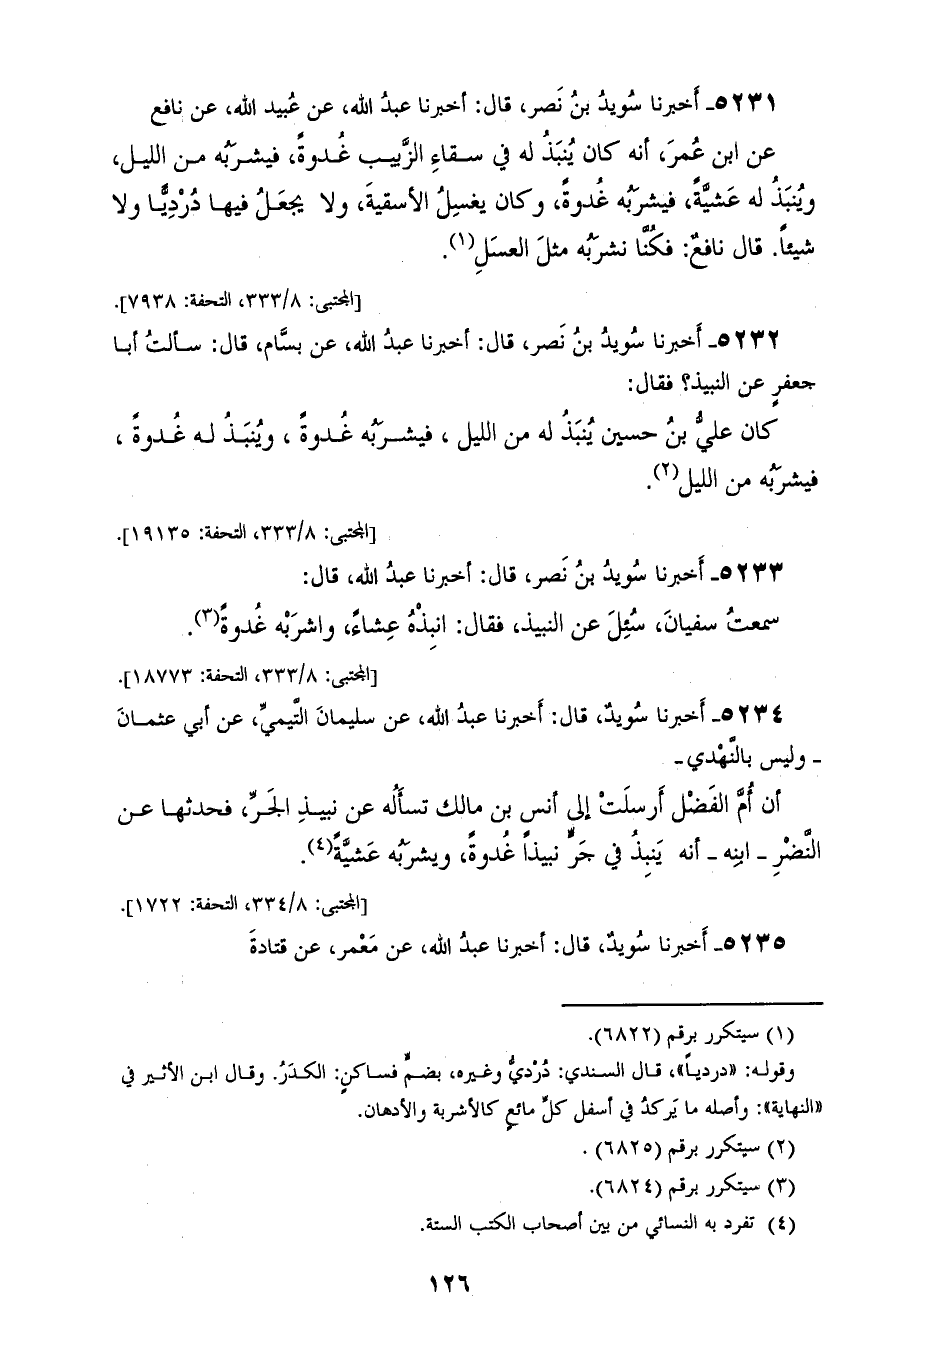 ٥٢٣١ـ أَخبرنا سُويدُ بنُ نَصر، قال: أخبرنا عبدُ الله، عن عُبيد الله، عن نافع
عن ابن عُمرَ، أنه كان يُنبَذُ له في سقاءِ الزَّبيب غُدوةً، فيشربُه من الليل،
ويُنبَذُ له عَشيَّةً، فيشربُه غُدوةً، وكان يغسِلُ الأسقيةَ، ولا يجعَلُ فيها دُرْدِيًّا ولا
شيئاً. قال نافعٌ: فكُنَّا نشربُه مثلَ العسَلِ(١).
[المجتبى: ٣٣٣/٨، التحفة: ٧٩٣٨].
٥٢٣٢ـ أَخبرنا سُويدُ بنُ نَصر، قال: أخبرنا عبدُ الله، عن بسَّام، قال: سألتُ أبا
جعفرٍ عن النبيذ؟ فقال:
كان عليُّ بنُ حسين يُنبَذُ له من الليل ، فيشربُه غُدوةً ، ويُنبَذُ له غُدوةً ،
فيشربُه من الليل(٢).
[المجتبى: ٣٣٣/٨، التحفة: ١٩١٣٥].
٥٢٣٣ـ أَخبرنا سُويدُ بنُ نَصر، قال: أخبرنا عبدُ الله، قال:
سمعتُ سفيانَ، سُئِلَ عن النبيذ، فقال: انبِذْهُ عِشاءً، واشربْه غُدوةً(٣).
[المجتبى: ٣٣٣/٨، التحفة: ١٨٧٧٣].
٥٢٣٤ـ أَخبرنا سُويدٌ، قال: أَخبرنا عبدُ الله، عن سليمانَ التَّيميِّ، عن أبي عثمانَ
ـ وليس بالنَّهْدي ـ
أن أُمَّ الفَضْل أَرسلَتْ إلى أنس بن مالك تسأَلُه عن نبيذِ الجَرِّ، فحدثها عن
النَّضْرِ ـ ابنِه ـ أنه يَنبِذُ في جَرٍّ نبيذاً غُدوةً، ويشربُه عَشيَّةً(٤).
[المجتبى: ٣٣٤/٨، التحفة: ١٧٢٢].
٥٢٣٥ـ أَخبرنا سُويدٌ، قال: أخبرنا عبدُ الله، عن مَعْمر، عن قتادةَ
(١) سيتكرر برقم (٦٨٢٢).
وقوله: «دردياً»، قال السندي: دُرْديُّ وغيره، بضمٍّ فساكنٍ: الكدَرُ. وقال ابن الأثير في
«النهاية»: وأصله ما يَركدُ في أسفل كلِّ مائعٍ كالأشربة والأدهان.
(٢) سيتكرر برقم (٦٨٢٥) .
(٣) سيتكرر برقم (٦٨٢٤).
(٤) تفرد به النسائي من بين أصحاب الكتب الستة.
١٢٦